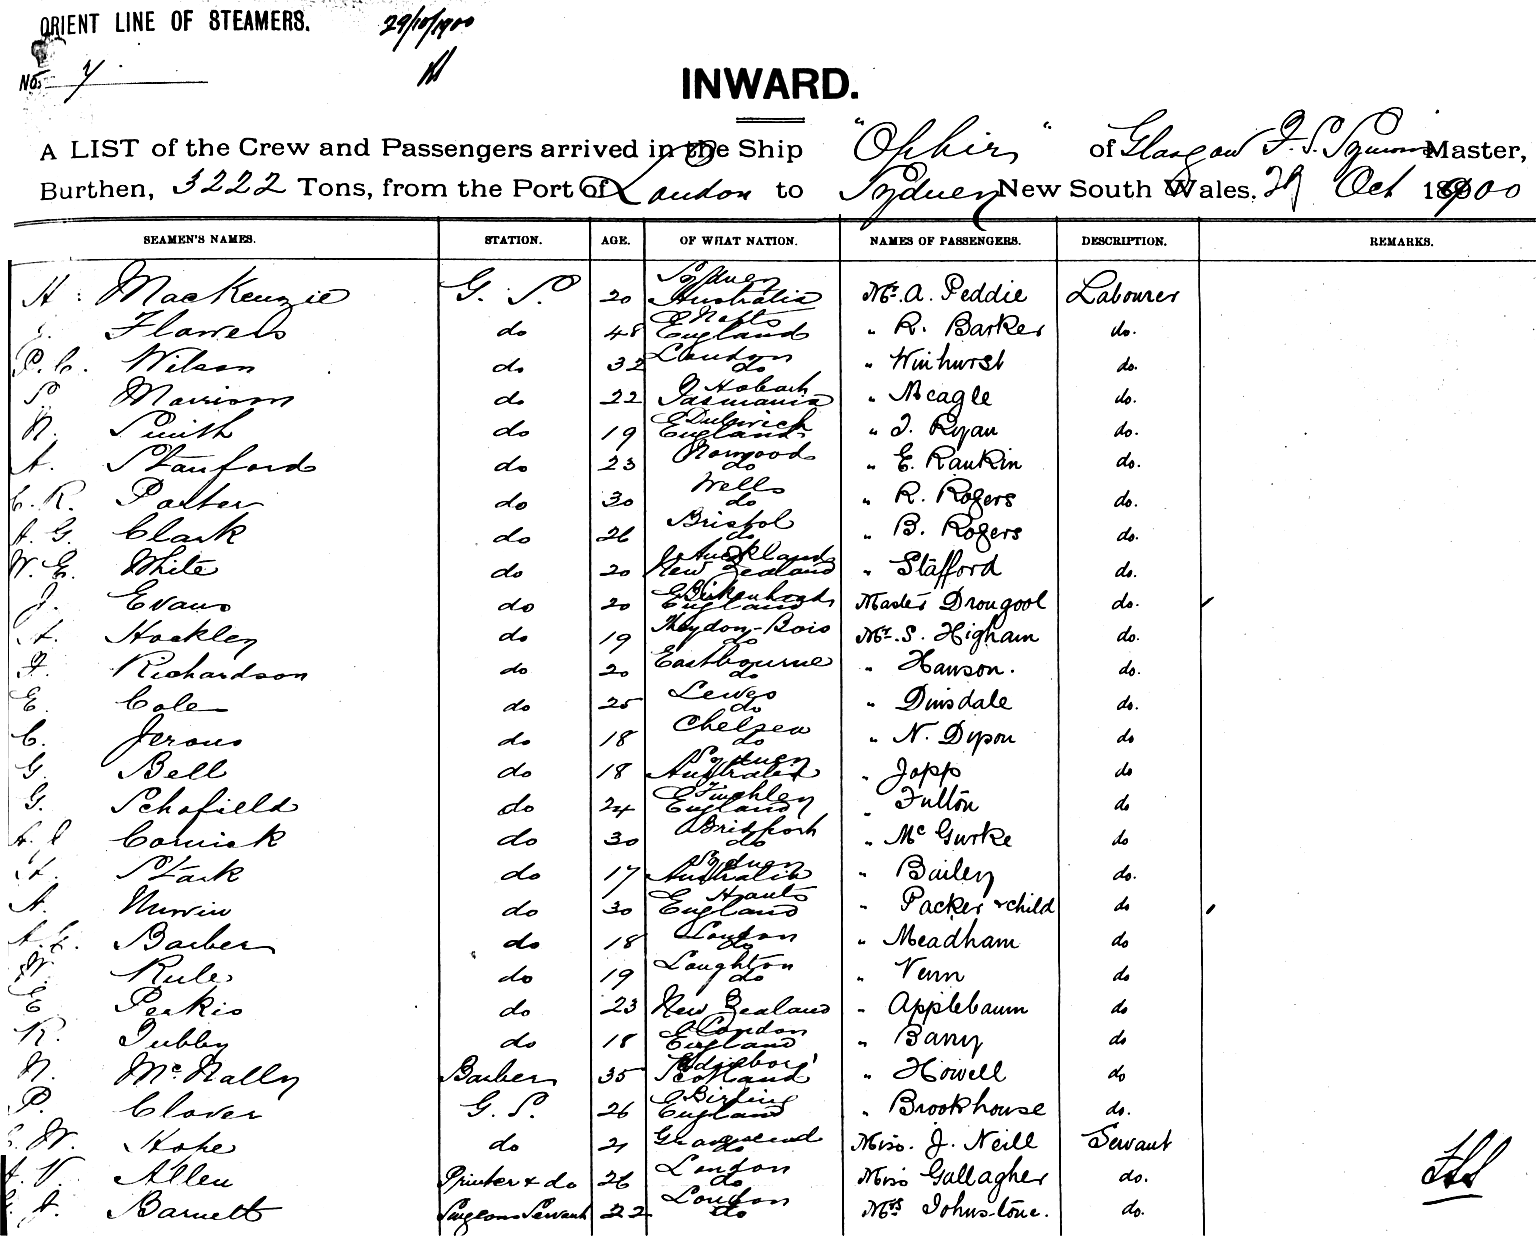 ORIENT LINE OF STEAMERS. 29/10/1900
No. 7
INWARD.
A LIST of the Crew and Passengers arrived in the Ship "Ophir" of Glasgow Master,
Burthen, 3222 Tons, from the Port of London to Sydney New South Wales. 29 Oct 1900
SEAMEN'S NAMES. STATION. AGE. OF WHAT NATION. NAMES OF PASSENGERS. DESCRIPTION. REMARKS.
H. MacKenzie G. S. 20 Sydney Australia Mr. A. Peddie Labourer
Flowers do 48 England " R. Barker do.
P. C. Wilson do 32 London do " Winhurst do.
S. Morrison do 22 Hobart Tasmania " Meagle do.
N. Smith do 19 Dulwich England " J. Ryan do.
A. Stanford do 23 Norwood do " E. Rankin do.
C. R. Parker do 30 Wells do " R. Rogers do.
A. G. Clark do 26 Bristol do " B. Rogers do.
W. E. White do 20 Auckland New Zealand " Stafford do.
J. Evans do 20 Birkenhead England Master Drongool do.
A. Hockley do 19 Theydon-Bois do Mr. S. Higham do.
F. Richardson do 20 Eastbourne do " Hanson. do.
E. Cole do 25 Lewes do " Dinsdale do.
C. Jerons do 18 Chelsea do " N. Dyson do
G. Bell do 18 Sydney Australia " Jopp do
G. Schofield do 24 Finchley England " Fulton do
Cornick do 30 Bridport do " McGurke do
H. Stark do 17 Sydney Australia " Bailey do.
A. do 30 Hants England " Packer & child do
A. E. Barber do 18 London do " Meadham do
W. Rule do 19 Loughton do " Venn do
E Perkis do 23 New Zealand " Applebaum do
R. Tubby do 18 London England " Barry do
N. McNally Barber 35 Scotland " Howell do
P. Clover G. S. 26 Birling England " Brookhouse do.
W. Hope do 21 Gravesend do Miss. J. Neill Servant
V. Allen Printer & do 26 London do Miss Gallagher do.
J. Barnett Surgeons Servant 22 London do Mrs Johnstone. do.